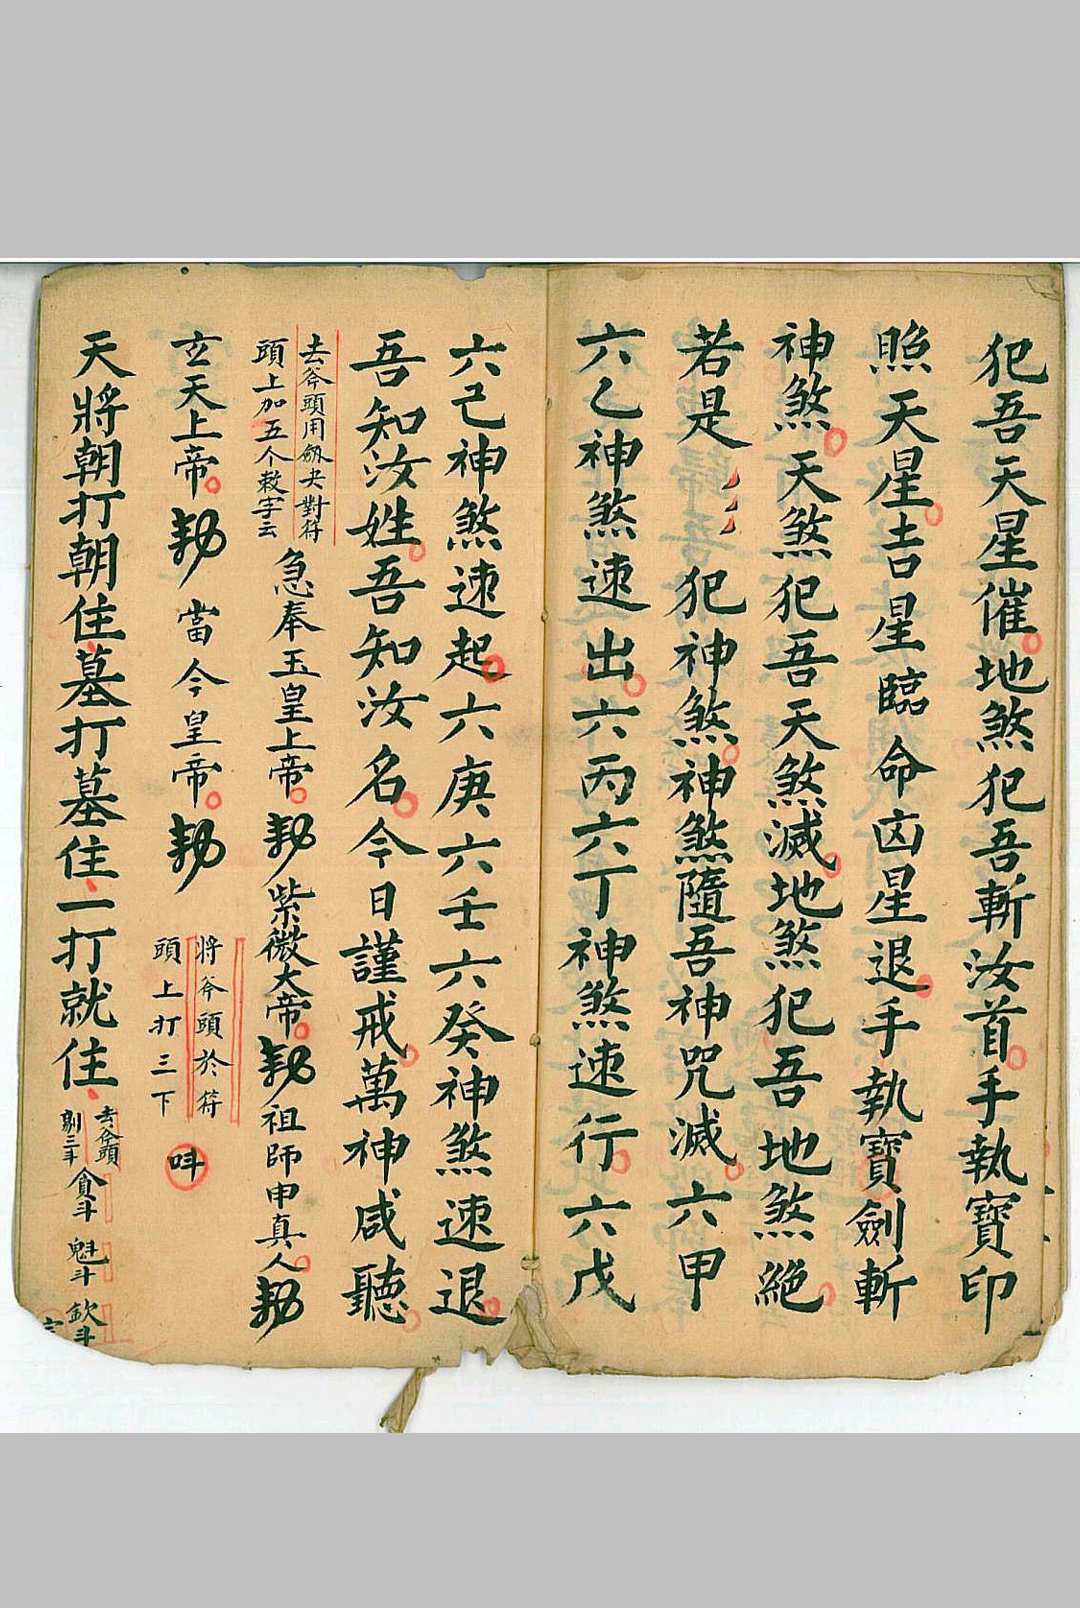 犯吾天星催地煞犯吾斬汝首手執寶印
照天星吉星臨命凶星退手執寶劍斬
神煞天煞犯吾天煞滅地煞犯吾地煞絕
若是犯神煞神煞隨吾神咒滅六甲
六乙神煞速出六丙六丁神煞速行六戊
六己神煞速起六庚六壬六癸神煞速退
吾知汝姓吾知汝名今日謹戒萬神咸聽
去斧頭用劔尖對符
頭上加五个敕字云
急奉玉皇上帝勅紫微大帝勅祖師申真人勅
玄天上帝勅當今皇帝勅
將斧頭於符
頭上打三下
天將朝打朝住墓打墓住一打就住
去斧頭
剔三斗
貪斗魁斗欽斗